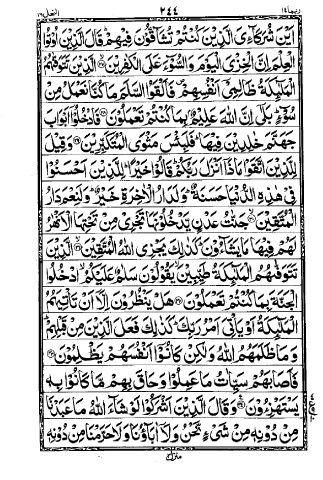 ربما ١٤ ٢٤٤ النحل ١٦
اَيْنَ شُرَكَآءِيَ الَّذِيْنَ كُنْتُمْ تُشَآقُّوْنَ فِيْهِمْ ؕ قَالَ الَّذِيْنَ اُوْتُوا
الْعِلْمَ اِنَّ الْخِزْيَ الْيَوْمَ وَالسُّوْٓءَ عَلَى الْكٰفِرِيْنَ ۝٢٧ الَّذِيْنَ تَتَوَفّٰىهُمُ
الْمَلٰٓئِكَةُ ظَالِمِيْٓ اَنْفُسِهِمْ فَاَلْقَوُا السَّلَمَ مَا كُنَّا نَعْمَلُ مِنْ
سُوْٓءٍ ؕ بَلٰٓى اِنَّ اللّٰهَ عَلِيْمٌۢ بِمَا كُنْتُمْ تَعْمَلُوْنَ ۝٢٨ فَادْخُلُوْٓا اَبْوَابَ
جَهَنَّمَ خٰلِدِيْنَ فِيْهَا ؕ فَلَبِئْسَ مَثْوَى الْمُتَكَبِّرِيْنَ ۝٢٩ وَقِيْلَ
لِلَّذِيْنَ اتَّقَوْا مَاذَآ اَنْزَلَ رَبُّكُمْ ؕ قَالُوْا خَيْرًا ؕ لِلَّذِيْنَ اَحْسَنُوْا
فِيْ هٰذِهِ الدُّنْيَا حَسَنَةٌ ؕ وَلَدَارُ الْاٰخِرَةِ خَيْرٌ ؕ وَلَنِعْمَ دَارُ
الْمُتَّقِيْنَ ۝٣٠ جَنّٰتُ عَدْنٍ يَّدْخُلُوْنَهَا تَجْرِيْ مِنْ تَحْتِهَا الْاَنْهٰرُ
لَهُمْ فِيْهَا مَا يَشَآءُوْنَ ؕ كَذٰلِكَ يَجْزِي اللّٰهُ الْمُتَّقِيْنَ ۝٣١ الَّذِيْنَ
تَتَوَفّٰىهُمُ الْمَلٰٓئِكَةُ طَيِّبِيْنَ ۙ يَقُوْلُوْنَ سَلٰمٌ عَلَيْكُمُ ۙ ادْخُلُوا
الْجَنَّةَ بِمَا كُنْتُمْ تَعْمَلُوْنَ ۝٣٢ هَلْ يَنْظُرُوْنَ اِلَّآ اَنْ تَاْتِيَهُمُ
الْمَلٰٓئِكَةُ اَوْ يَاْتِيَ اَمْرُ رَبِّكَ ؕ كَذٰلِكَ فَعَلَ الَّذِيْنَ مِنْ قَبْلِهِمْ ؕ
وَمَا ظَلَمَهُمُ اللّٰهُ وَلٰكِنْ كَانُوْٓا اَنْفُسَهُمْ يَظْلِمُوْنَ ۝٣٣
فَاَصَابَهُمْ سَيِّاٰتُ مَا عَمِلُوْا وَحَاقَ بِهِمْ مَّا كَانُوْا بِهٖ
يَسْتَهْزِءُوْنَ ۝٣٤ وَقَالَ الَّذِيْنَ اَشْرَكُوْا لَوْ شَآءَ اللّٰهُ مَا عَبَدْنَا
مِنْ دُوْنِهٖ مِنْ شَيْءٍ نَّحْنُ وَلَآ اٰبَآؤُنَا وَلَا حَرَّمْنَا مِنْ دُوْنِهٖ